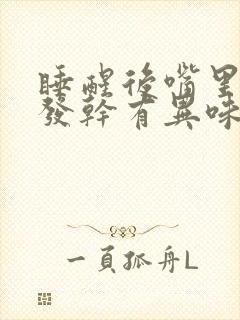 睡醒後嘴里
發幹有異味
一頁孤舟L